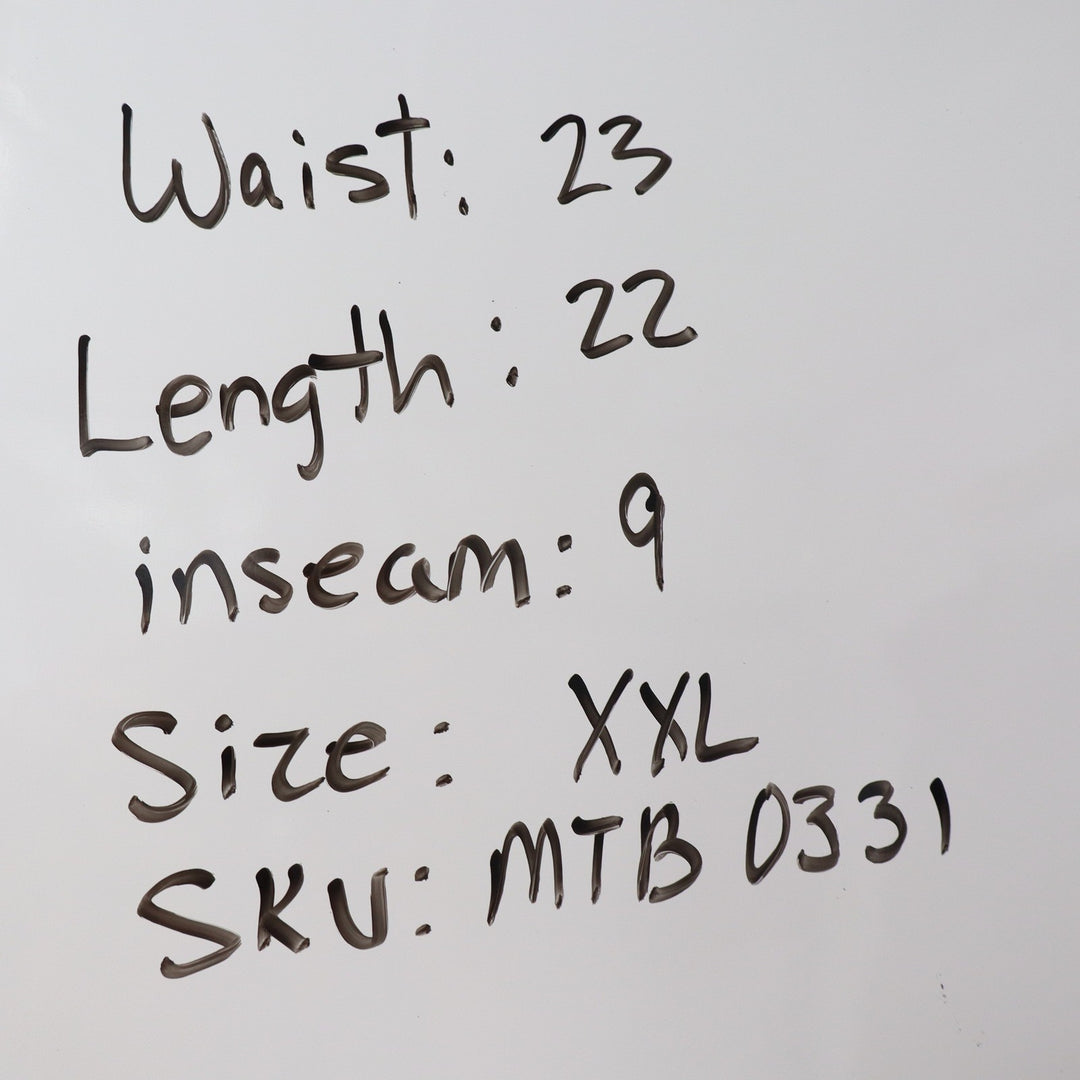 Waist: 23
Length: 22
inseam: 9
Size: XXL
SKU: MTB 0331